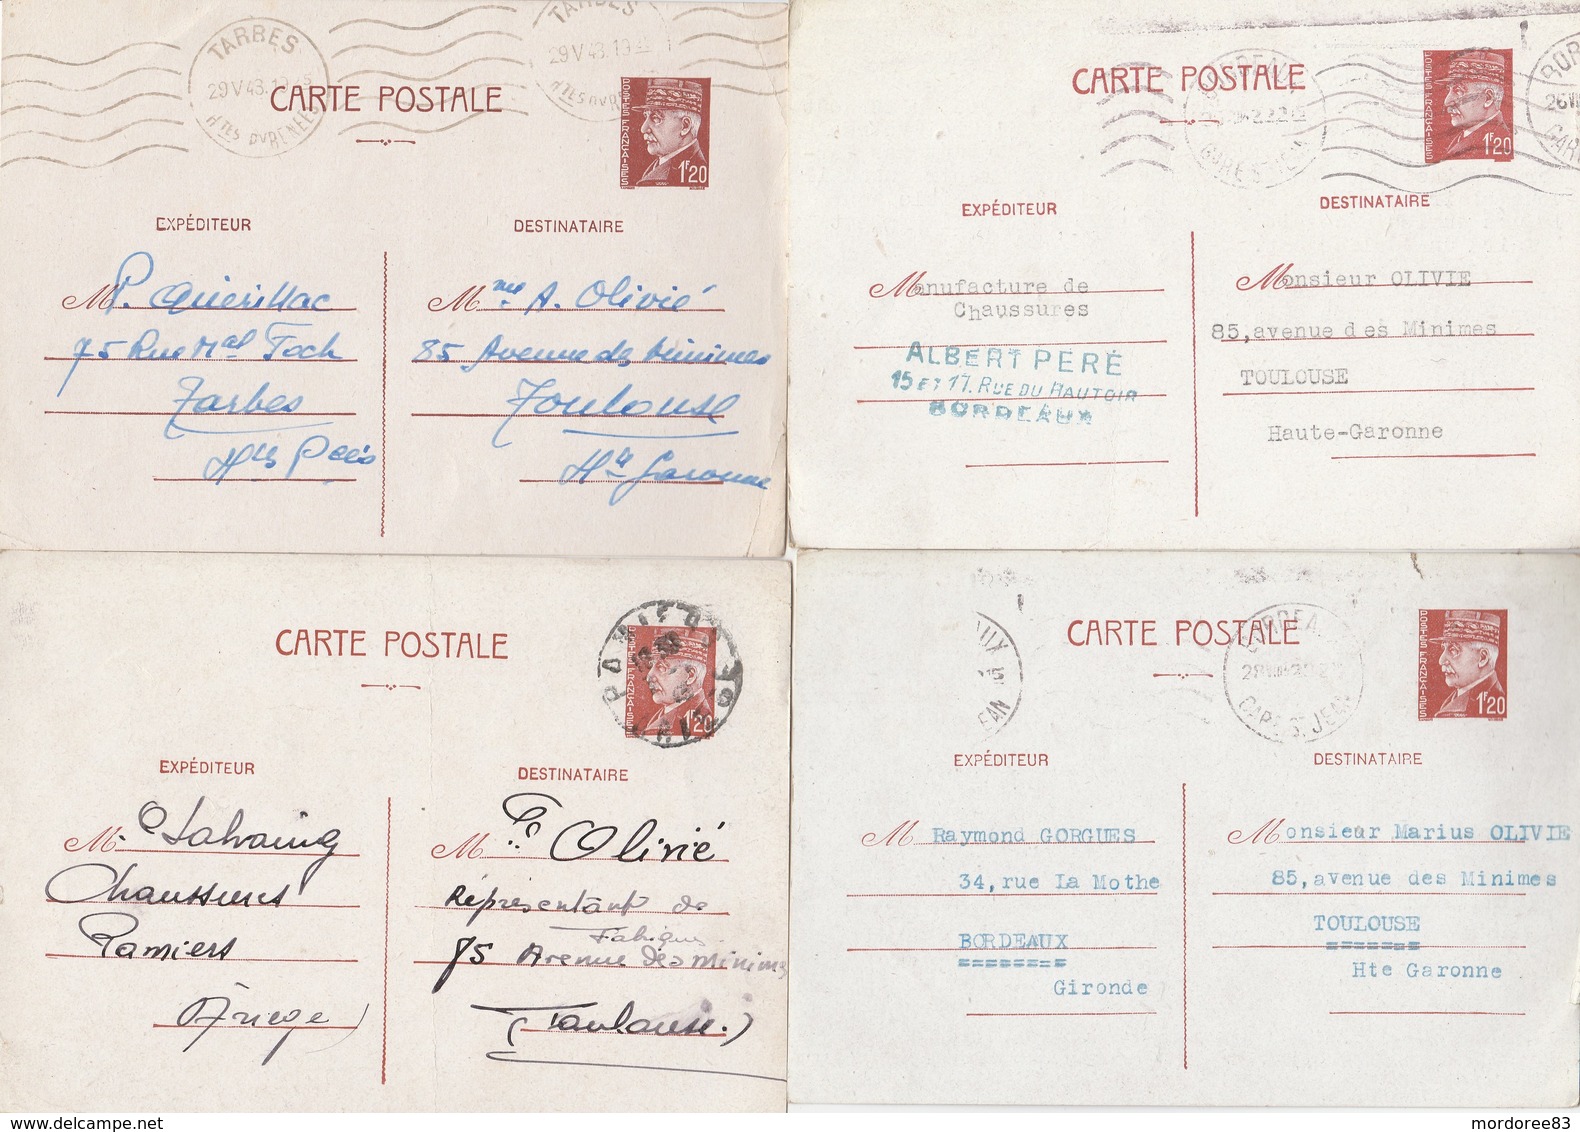 TARBES
29 V 43
Htes PYRENEES
TARBES
29 V 43
CARTE POSTALE
POSTES FRANÇAISES
1F20
EXPÉDITEUR
DESTINATAIRE
M P. Querillac
75 Rue Mal Foch
Tarbes
Htes Pées
Mme A. Olivié
85 Avenue des Minimes
Toulouse
Hte Garonne
BORDEAUX
GARE ST JEAN
CARTE POSTALE
POSTES FRANÇAISES
1F20
EXPÉDITEUR
DESTINATAIRE
Manufacture de
Chaussures
ALBERT PERÉ
15 ET 17. RUE DU HAUTOIR
BORDEAUX
Monsieur OLIVIE
85, avenue des Minimes
TOULOUSE
Haute-Garonne
CARTE POSTALE
POSTES FRANÇAISES
1F20
EXPÉDITEUR
DESTINATAIRE
M
Chaussures
Pamiers
Ariège
M Olivié
Réprésentant de
Fabriques
75 Avenue des Minimes
(Toulouse.)
BORDEAUX
GARE ST JEAN
CARTE POSTALE
POSTES FRANÇAISES
1F20
EXPÉDITEUR
DESTINATAIRE
M Raymond GORGUES
34, rue La Mothe
BORDEAUX
========
Gironde
Monsieur Marius OLIVIE
85, avenue des Minimes
TOULOUSE
=======
Hte Garonne
www.delcampe.net
mordoree83